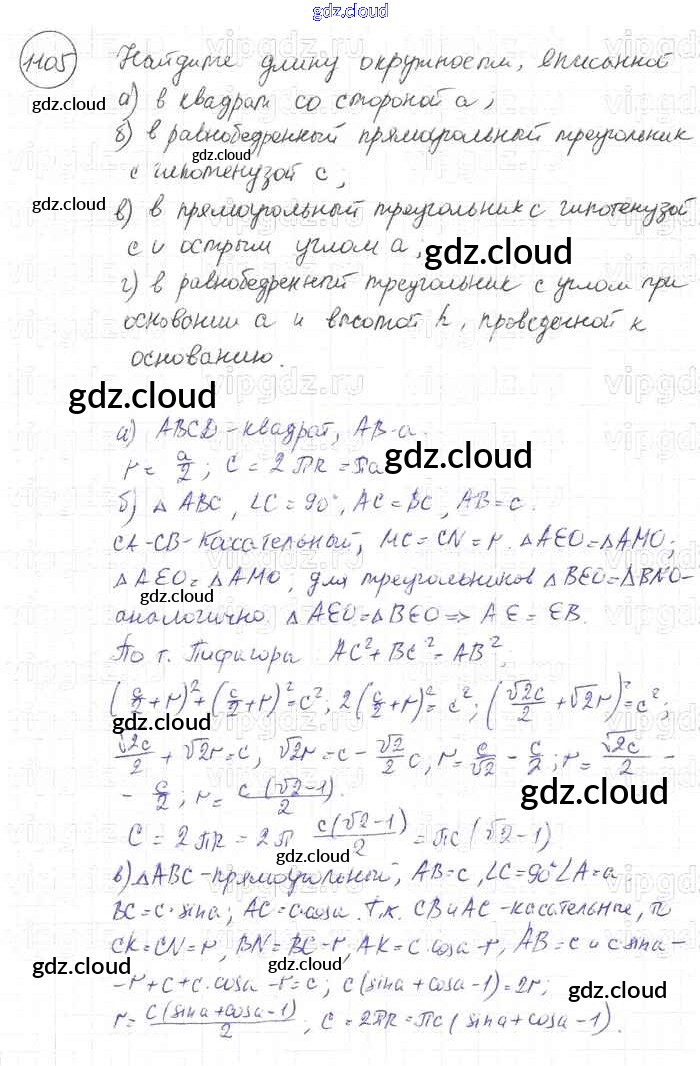 gdz.cloud
1105 Найдите длину окружности, вписанной
а) в квадрат со стороной а;
gdz.cloud
б) в равнобедренный прямоугольный треугольник
gdz.cloud
с гипотенузой с;
gdz.cloud
в) в прямоугольный треугольник с гипотенузой
с и острым углом а;
gdz.cloud
г) в равнобедренный треугольник с углом при
основании а и высотой h, проведенной к
основанию.
vipgdz.ru
gdz.cloud
а) ABCD - квадрат, AB - a.
r = a/2; C = 2πR = πa
gdz.cloud
б) △ ABC, ∠C = 90°, AC = BC, AB = c.
CA - CB - касательный, MC = CN = r. △AEO = △AMO;
△AEO = △AMO; для треугольников △BEO = △BNO -
gdz.cloud
аналогично. △AEO = △BEO => AE = EB.
По т. Пифагора AC² + BC² = AB²;
(c/2 + r)² + (c/2 + r)² = c²; 2(c/2 + r)² = c²; (√2c/2 + √2r)² = c²;
gdz.cloud
√2c/2 + √2r = c, √2r = c - √2/2 c; r = c/√2 - c/2; r = √2c/2 -
- c/2; r = c(√2-1)/2.
gdz.cloud
C = 2πR = 2π c(√2-1)/2 = πc(√2-1)
gdz.cloud
в) △ABC - прямоугольный, AB = c, ∠C = 90° ∠A = a
BC = c·sina; AC = c·cosa. Т.к. CB и AC - касательные, то
CK = CN = r, BN = BC - r, AK = c·cosa - r, AB = c и c·sina -
gdz.cloud
gdz.cloud
- r + c + c·cosa - r = c; c(sina + cosa - 1) = 2r;
gdz.cloud
r = c(sina + cosa - 1)/2; C = 2πR = πc(sina + cosa - 1).
gdz.cloud
gdz.cloud